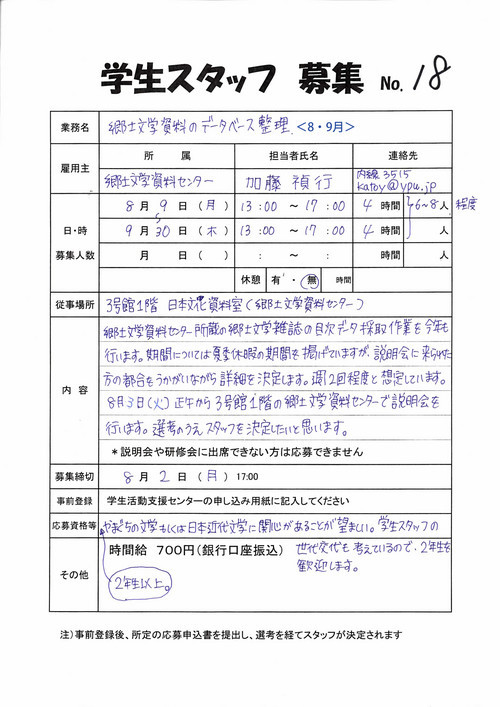 学生スタッフ 募集 No. 18
業務名 郷土文学資料のデータベース整理 <8・9月>
雇用主 所属 担当者氏名 連絡先
郷土文学資料センター 加藤 禎行 内線3515 katoy@ypu.jp
日・時 募集人数 8月9日(月) 13:00 ～ 17:00 4時間 6~8人 程度
9月30日(木) 13:00 ～ 17:00 4時間 人
月 日( ) : ～ : 時間 人
休憩 有・無 時間
従事場所 3号館1階 日本文化資料室(郷土文学資料センター)
内容 郷土文学資料センター所蔵の郷土文学雑誌の目次データ採取作業を今年も
行います。期間については夏季休暇の期間を掲げていますが、説明会に来られた
方の都合をうかがいながら詳細を決定します。週2回程度と想定しています。
8月3日(火)正午から3号館1階の郷土文学資料センターで説明会を
行います。選考のうえスタッフを決定したいと思います。
*説明会や研修会に出席できない方は応募できません
募集締切 8月2日(月) 17:00
事前登録 学生活動支援センターの申し込み用紙に記入してください
応募資格等 やまぐちの文学もしくは日本近代文学に関心があることが望ましい。学生スタッフの
その他 時間給 700円(銀行口座振込) 世代交代も考えているので、2年生を
歓迎します。
2年生以上。
注)事前登録後、所定の応募申込書を提出し、選考を経てスタッフが決定されます